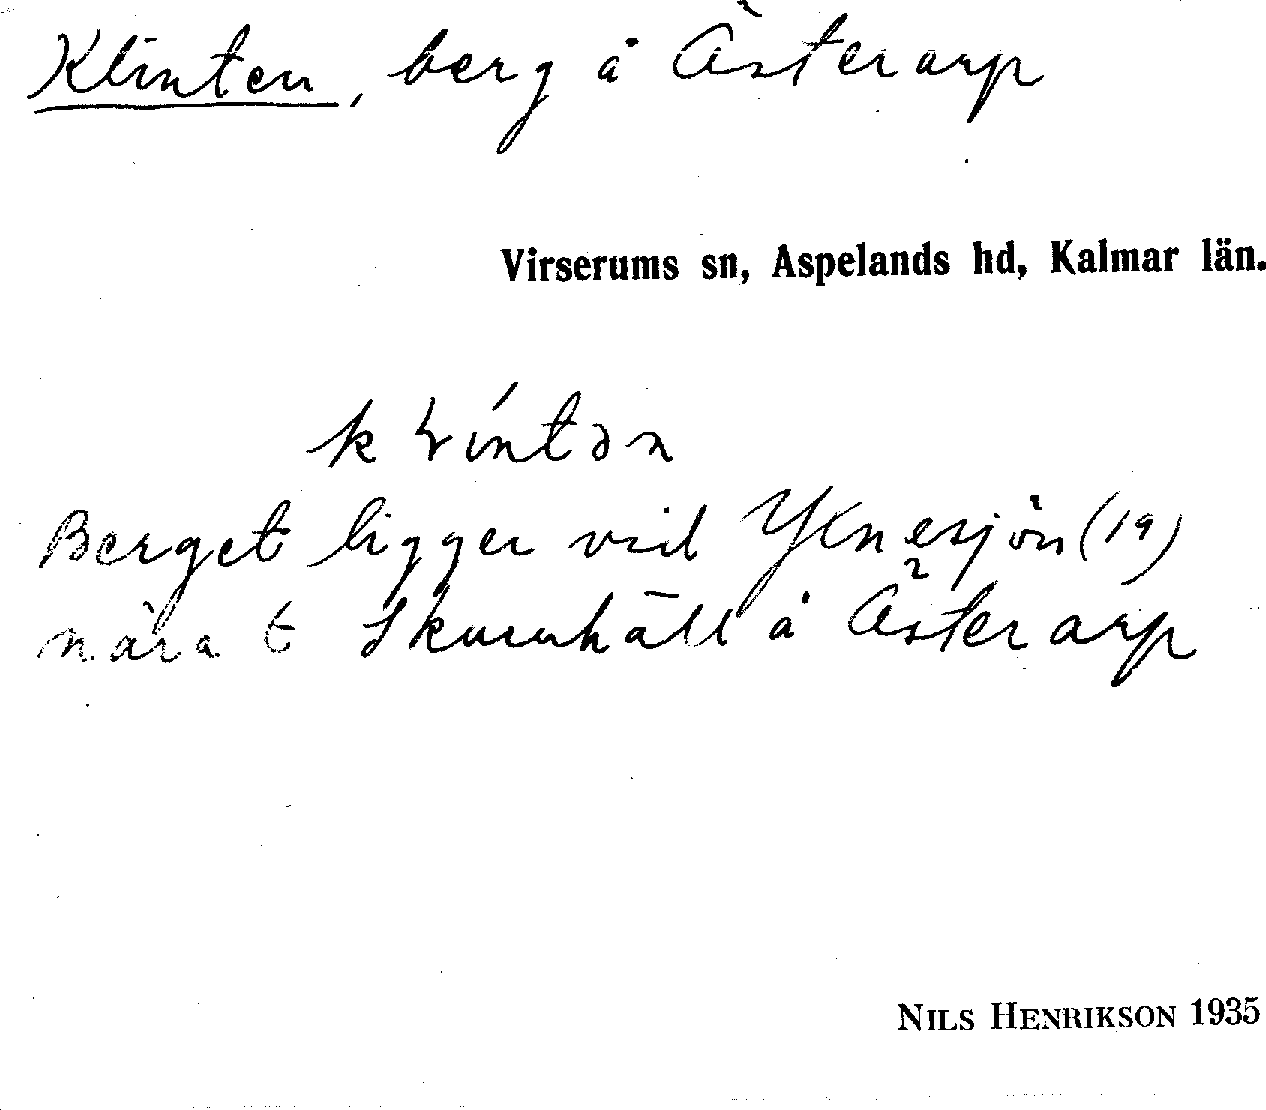 Klinten, berg å Österarp
Virserums sn, Aspelands hd, Kalmar län.
Berget ligger vid Ylnesjön (19)
nära t Skuruhäll å Österarp
NILS HENRIKSON 1935